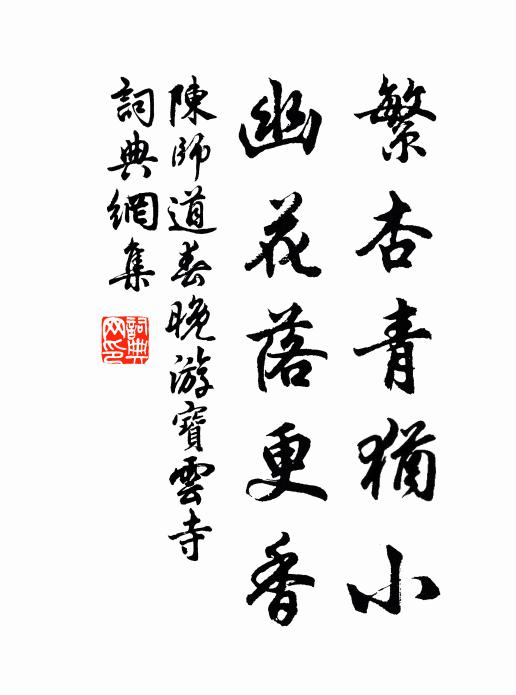 繁杏青猶小
幽花落更香
陳師道春晚游寶雲寺
詞典網集
詞典網印